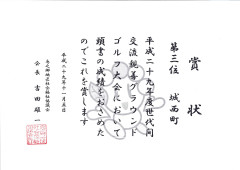 賞状
第三位 城西町
平成二十九年度世代間
交流親善グラウンド
ゴルフ大会において
頭書の成績をおさめた
のでこれを賞します
平成二十九年十一月五日
会長 吉田雄一